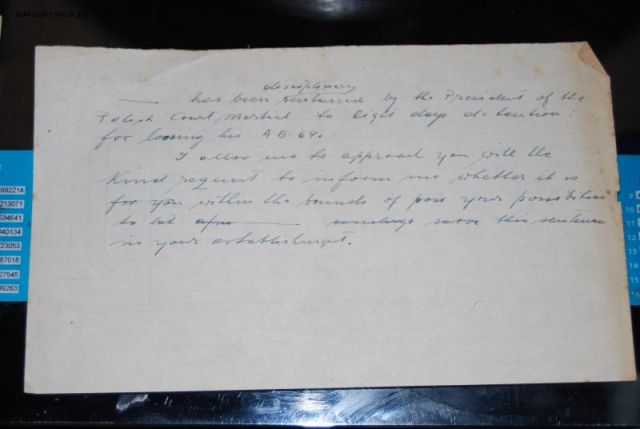 www.odkrywca.pl
disciplinary
has been sentenced by the President of the
Polish Court Martial to eight days detention:
for loosing his A.B. 64.
I allow me to approach you with the
kind request to inform me whether it is
for you within the bounds of your possibilities
to let undergo serve this sentence
in your establishment.
692214
213071
634641
040134
723053
67018
27545
99263
9
10
11
12
13
14
15